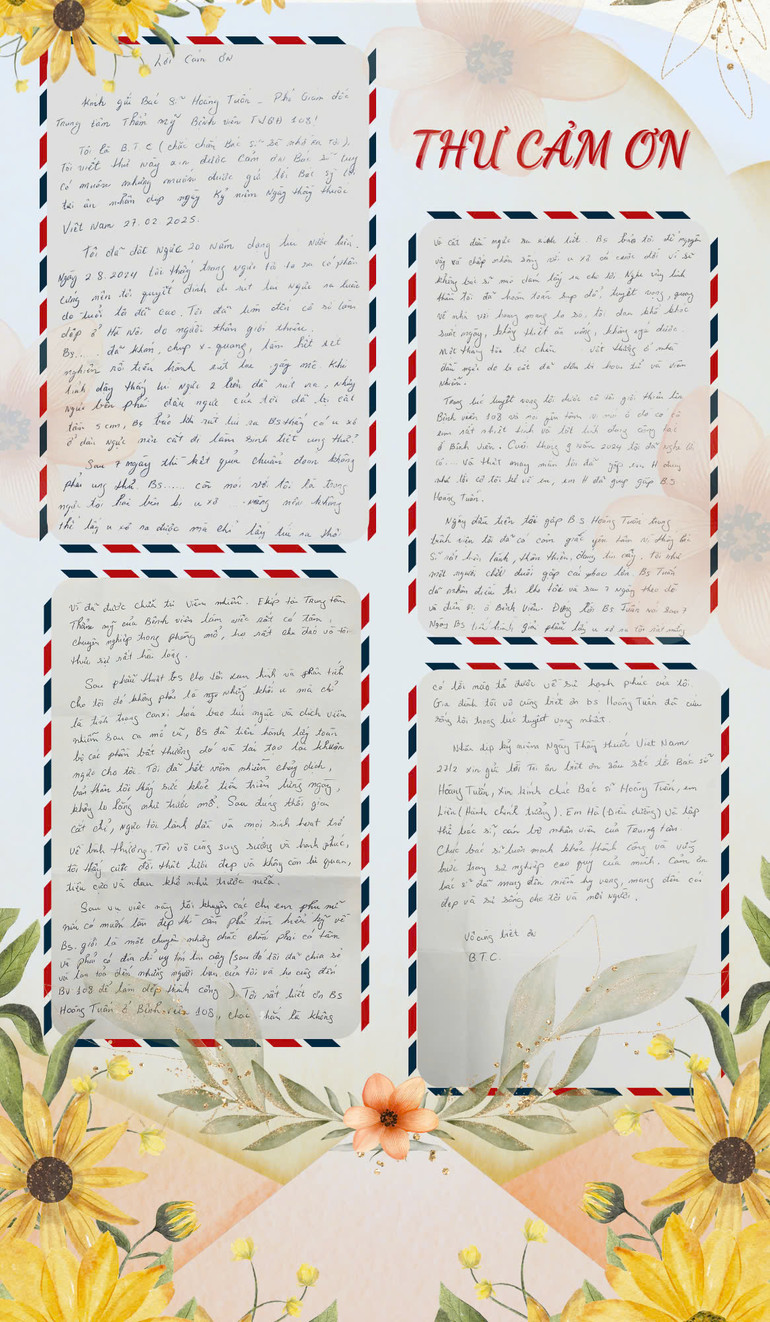 THƯ CẢM ƠN
Lời Cảm ƠN
Kính gửi Bác Sĩ Hoàng Tuấn - Phó Giám đốc
Trung tâm Thẩm mỹ Bệnh viện TWQĐ 108!
Tôi là B.T.C (chắc chắn Bác sĩ sẽ nhớ ra tôi).
Tôi viết thư này xin được cảm ơn Bác sĩ tuy
có muộn nhưng muốn được gửi tới Bác sỹ lời
tri ân nhân dịp ngày Kỷ niệm Ngày thầy thuốc
Việt Nam 27.02 2025.
Tôi đã đặt Ngực 20 năm dạng túi nước biển.
Ngày 2.8.2024 tôi thấy trong ngực tôi to ra có phần
cứng nên tôi quyết định đi rút túi Ngực ra luôn
do tuổi tôi đã cao. Tôi đã tìm đến cơ sở làm
đẹp ở Hà Nội do người thân giới thiệu.
Bs..... đã khám, chụp x-quang, làm hết xét
nghiệm rồi tiến hành rút túi gây mê. Khi
tỉnh dậy thấy túi ngực 2 bên đã rút ra, nhưng
ngực bên phải đầu ngực của tôi đã bị cắt
tầm 5cm, Bs bảo khi rút túi ra BS thấy có u xơ
ở đầu Ngực nên cắt đi làm sinh thiết ung thư?
Sau 7 ngày thì kết quả chuẩn đoán không
phải ung thư. Bs..... còn nói với tôi là trong
ngực tôi hai bên bị u xơ nặng nên không
thể lấy u xơ ra được mà chỉ lấy túi ra thôi
và cắt đầu ngực đi sinh thiết. Bs bảo tôi để nguyên
vậy và chấp nhận sống với u xơ cả cuộc đời vì sẽ
không bác sĩ nào dám lấy ra cho tôi. Nghe vậy tinh
thần tôi đã hoàn toàn sụp đổ, tuyệt vọng, quay
về nhà với hoang mang lo sợ, tôi đau khổ khóc
suốt ngày, không thiết ăn uống, không ngủ được.
Một tháng sau tự chăm vết thương ở nhà
đầu ngực do bị cắt đã dần bị hoại tử và viêm
nhiễm.
Trong lúc tuyệt vọng tôi được
Bệnh viện 108 và nói yên tâm vì nói ở đó có
ở Bệnh viện. Cuối tháng 9 năm 2024 tôi đã nghe
Cô..... Và thật may mắn tôi đã gặp em H đúng
như lời cô tôi kể về em, em H đã giúp gặp B.S
Hoàng Tuấn.
Ngày đầu tiên tôi gặp B.S Hoàng Tuấn trong
bệnh viện tôi đã có cảm giác yên tâm vì thấy bác
sĩ rất hiền lành, thân thiện, đáng tin cậy. Tôi như
một người chết đuối gặp cái phao lớn. Bs Tuấn
đã nhận điều trị cho tôi và sau 7 ngày theo dõi
và điều trị ở Bệnh Viện. Đúng lời Bs Tuấn nói sau 7
Ngày Bs tiến hành giải phẫu lấy u xơ
vì đã được chữa trị viêm nhiễm. Ekip tại Trung tâm
Thẩm mỹ của Bệnh viện làm việc rất có tâm,
chuyên nghiệp trong phòng mổ, họ rất chu đáo và tôi
thực sự rất hài lòng.
Sau phẫu thuật bs cho tôi xem hình và phân tích
cho tôi đó không phải là ngo những khối u mà chỉ
là tình trạng canxi hoá bao túi ngực và dịch viêm
nhiễm sau ca mổ và, Bs đã tiến hành lấy toàn
bộ các phần bất thường đó và tái tạo lại khuôn
ngực cho tôi. Tôi đã hết viêm nhiễm chảy dịch,
bản thân tôi thấy sức khỏe tiến triển từng ngày,
không lo lắng như trước nữa. Sau đúng thời gian
cắt chỉ, ngực tôi lành dần và mọi sinh hoạt trở
về bình thường. Tôi vô cùng sung sướng và hạnh phúc,
tôi thấy cuộc đời thật tươi đẹp và không còn bi quan,
tiêu cực và đau khổ như trước nữa.
Sau vụ việc này tôi khuyên các chị em phụ nữ
nếu có muốn làm đẹp thì cần phải tìm hiểu kỹ về
Bs. giỏi là một chuyện nhưng chắc chắn phải có tâm
và phải có địa chỉ uy tín tin cậy (sau đó tôi đã chia sẻ
và lan toả đến những người bạn của tôi và họ cũng đến
BV 108 để làm đẹp thành công). Tôi rất biết ơn Bs
Hoàng Tuấn ở Bệnh viện 108, chắc chắn là không
có lời nào tả được về sự hạnh phúc của tôi.
Gia đình tôi vô cùng biết ơn bs Hoàng Tuấn đã cứu
sống tôi trong lúc tuyệt vọng nhất.
Nhân dịp kỷ niệm Ngày Thầy thuốc Việt Nam
27/2 xin gửi tới Tri ân biết ơn sâu sắc tới Bác sĩ
Hoàng Tuấn, xin kính chúc Bác sĩ Hoàng Tuấn, em
Liên (Hành chính trưởng). Em Hà (Điều dưỡng) và tập
thể bác sĩ, cán bộ nhân viên của Trung tâm.
Chúc bác sĩ luôn mạnh khỏe thành công và vững
bước trong sự nghiệp cao quý của mình. Cảm ơn
bác sĩ đã mang đến niềm hy vọng, mang đến cái
đẹp và sự sống cho tôi và mọi người.
Vô cùng biết ơn
B.T.C.